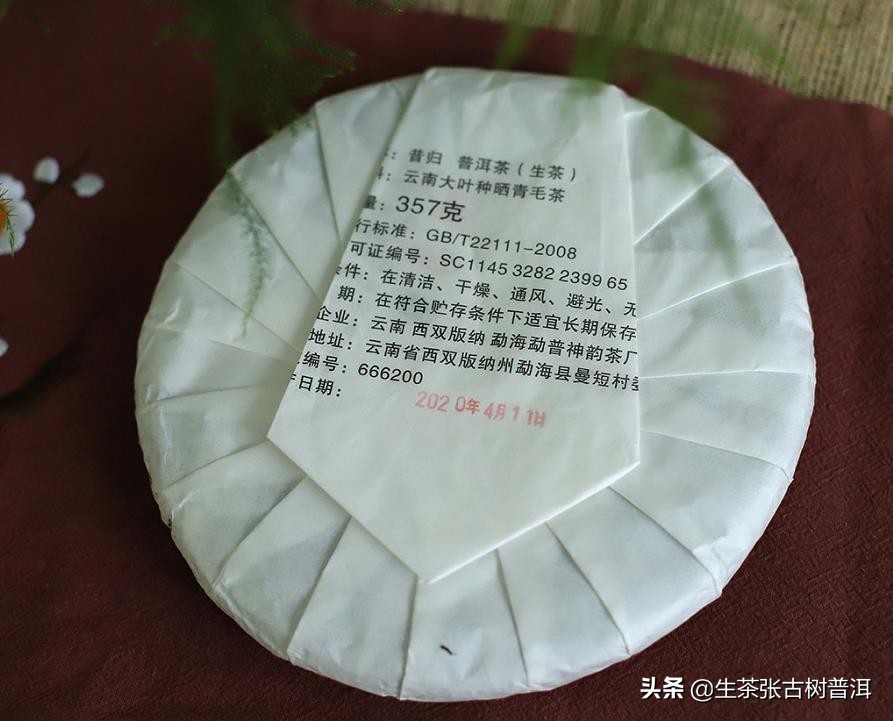 ：昔归 普洱茶（生茶）
：云南大叶种晒青毛茶
量：357克
行标准：GB/T22111-2008
可证编号：SC1145 3282 2399 65
条件：在清洁、干燥、通风、避光、无
期：在符合贮存条件下适宜长期保存
企业：云南 西双版纳 勐海勐普神韵茶厂
地址：云南省西双版纳州勐海县曼短村委
编号：666200
日期：
2020年4月11日
头条 @生茶张古树普洱